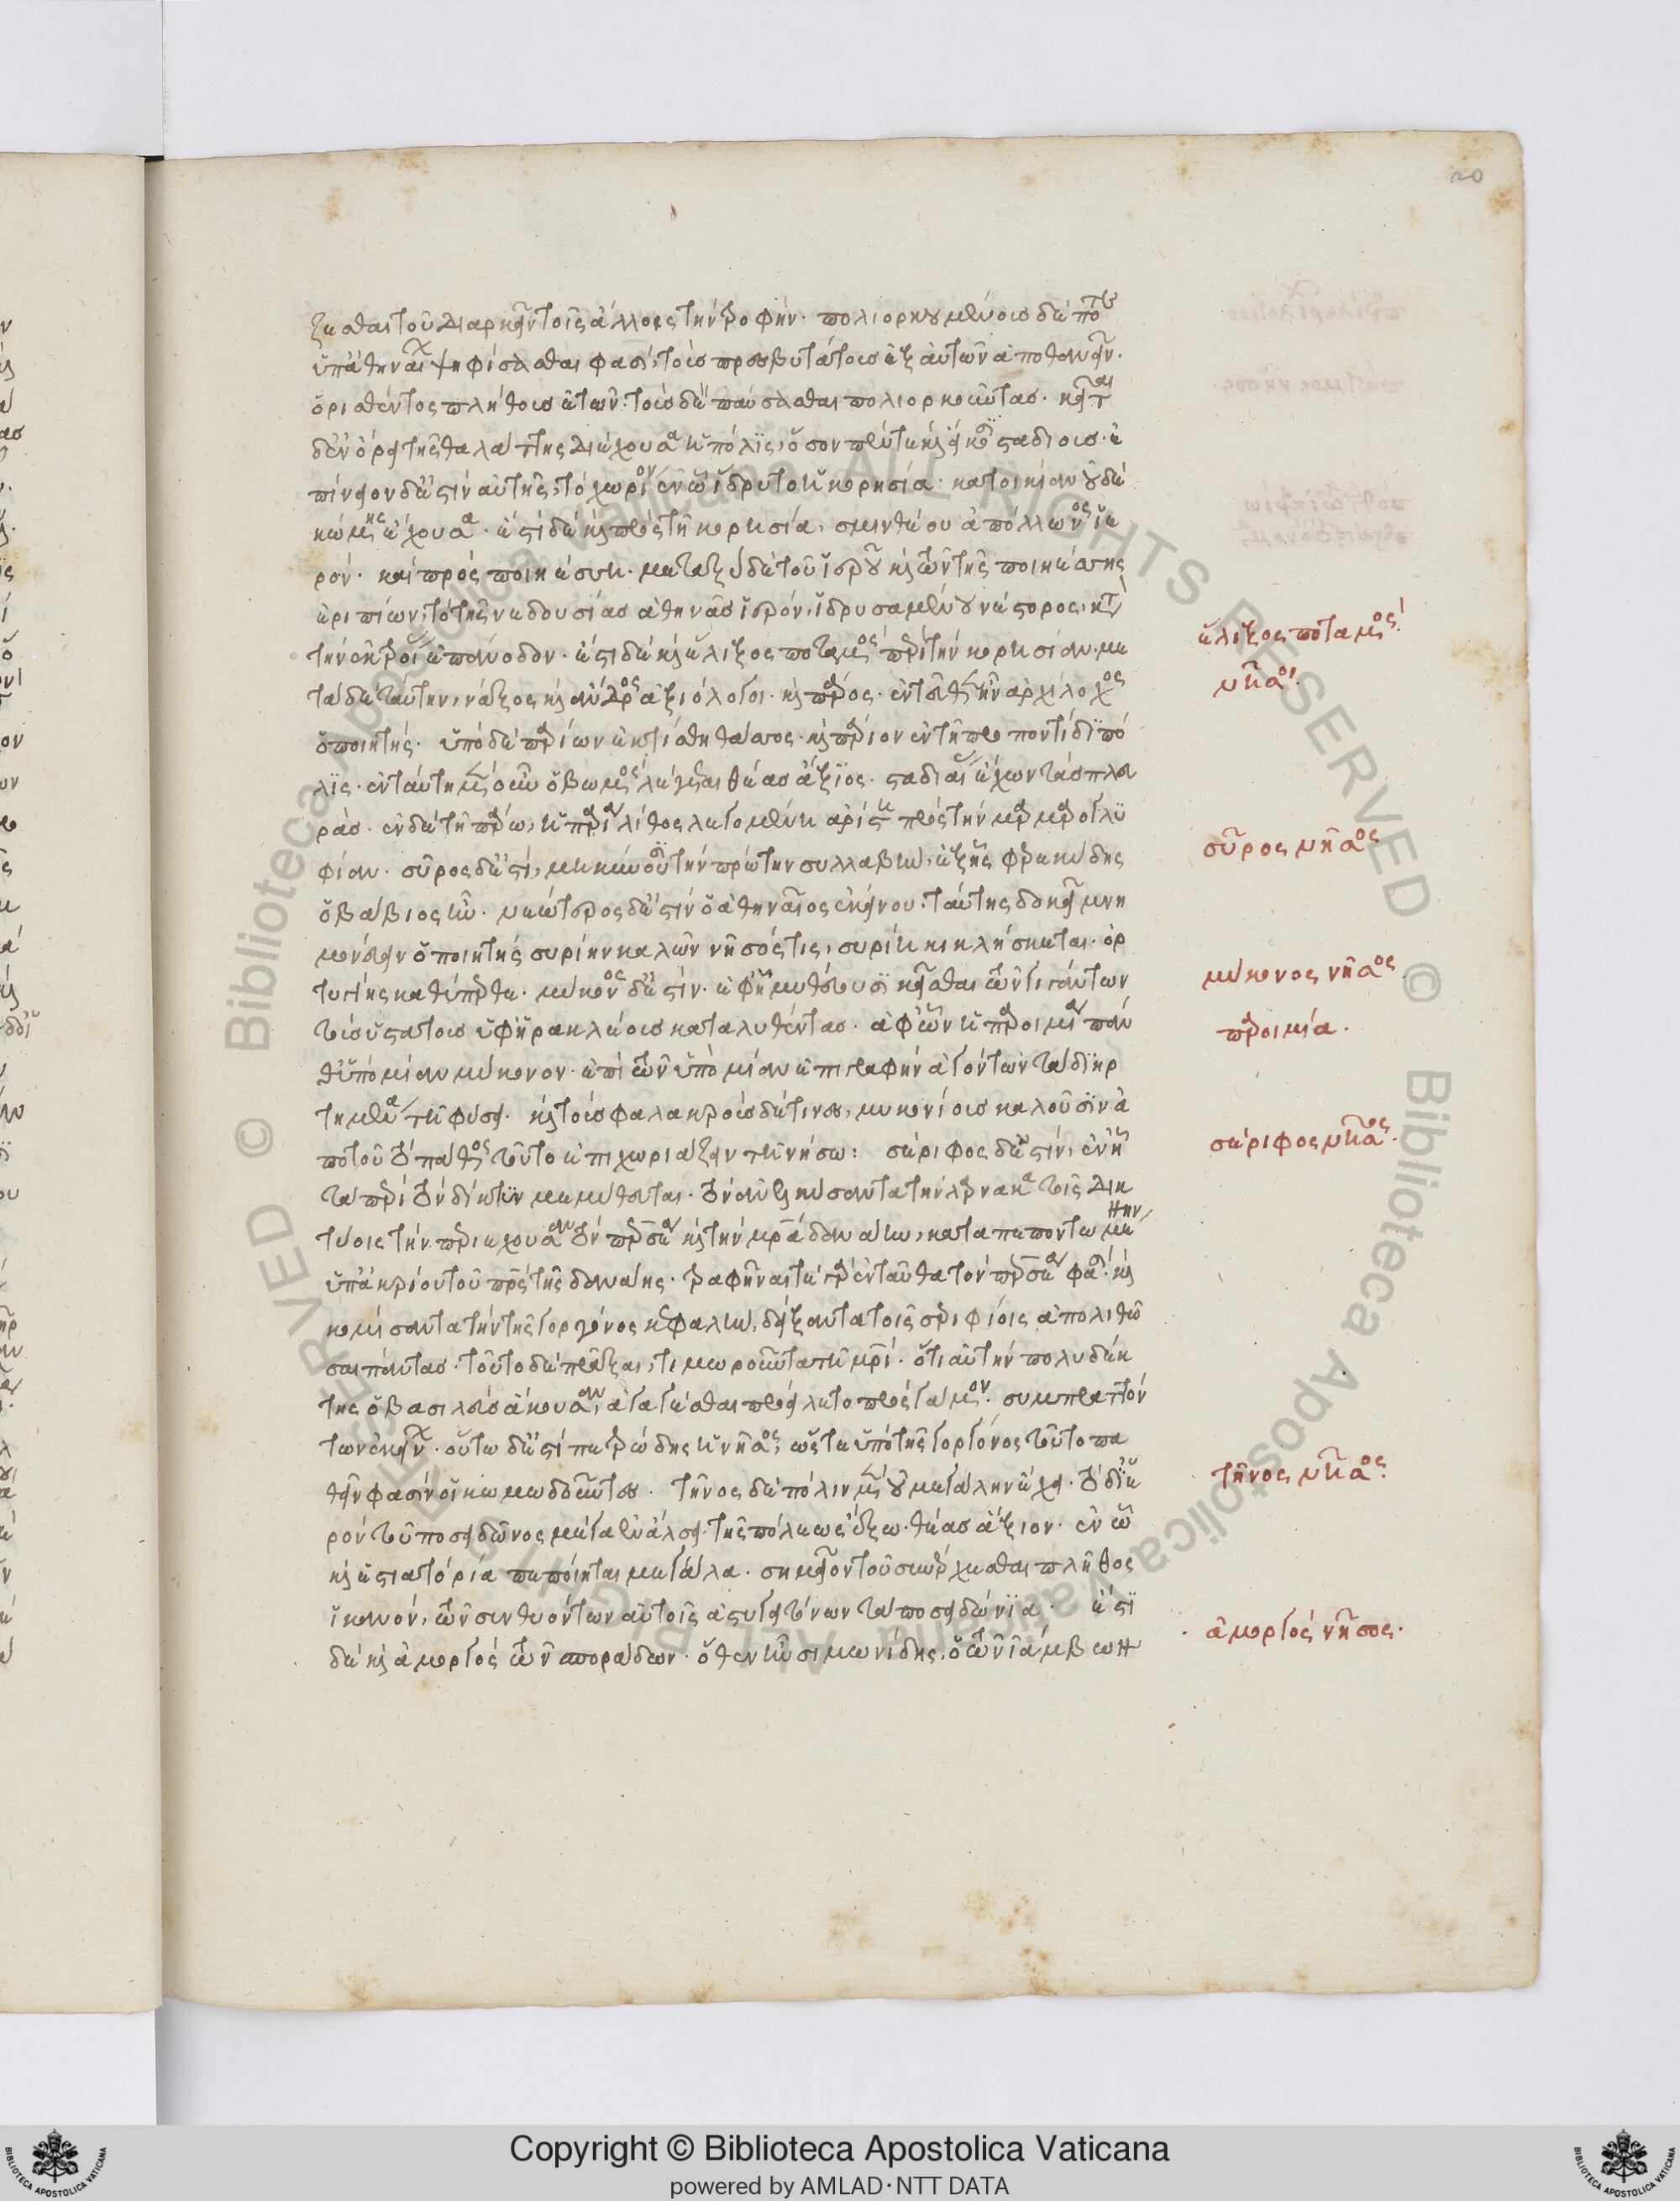 20
ξεσθαι τοῦ διαρκεῖν τοῖς ἄλλοις τὴν τροφήν· πολιορκουμένους δέ ποτε
ὑπ' ἀθηναί ψηφίσασθαι φασί, τοὺς πρεσβυτάτους ἐξ αὐτῶν ἀποθανεῖν·
ὁρισθέντος πλήθους ἐτῶν· τοὺς δὲ παύσασθαι πολιορκοῦντας· κεῖται
δ' ἐν ὄρει τῆς θαλάττης διέχουσα ἡ πόλις, ὅσον πέντε καὶ εἴκοσι σταδίους· ἐ
πίνειον δ' ἐστὶν αὐτῆς, τὸ χωρίον ἐν ᾧ ἵδρυτο ἡ κορησία· κατοικίαν οὐδὲ
κώμης ἔχουσα· ἔστι δὲ καὶ πρὸς τῇ κορησία, σμινθέου ἀπόλλωνος ἱε
ρόν· καὶ πρὸς ποιηέσση· μεταξὺ δὲ τοῦ ἱεροῦ καὶ τῶν τῆς ποιηέσσης
ἐριπίων, τὸ τῆς νεδουσίας ἀθηνᾶς ἱερόν, ἱδρυσαμένου νέστορος, κατὰ
τὴν ἐκ τροί ἐπάνοδον· ἔστι δὲ καὶ ἔλιξος ποταμὸς περὶ τὴν κορησίαν· με
τὰ δὲ ταύτην, νάξος καὶ ἄνδρος ἀξιόλογοι· καὶ πάρος· ἐντεῦθεν ἦν ἀρχίλοχος
ὁ ποιητής· ὑπὸ δὲ παρίων ἐκτίσθη θάσος· καὶ πάριον ἐν τῇ προποντίδι πό
λις· ἐν ταύτη μὲν οὖν ὁ βωμὸς λέγεται θέας ἄξιος· σταδιαί ἔχων τὰς πλευ
ράς· ἐν δὲ τῇ πάρω, ἡ παρία λίθος λεγομένη ἀρίστη πρὸς τὴν μαρμαρογλυ
φίαν· σῦρος δ' ἐστί, μηκύνουσι τὴν πρώτην συλλαβήν, ἐξ ἧς φερεκύδης
ὁ βάβιος ἦν· νεώτερος δ' ἐστὶν ὁ ἀθηναῖος ἐκείνου· ταύτης δοκεῖ μνη
μονεύειν ὁ ποιητής συρίην καλῶν νῆσός τις, συρίη κικλήσκεται· ὀρ
τυγίης καθύπερθε· μύκονος δ' ἐστίν· ἐφ' ᾗ μυθεύουσι κεῖσθαι τῶν γιγάντων
τοὺς ὑστάτους ὑφ' ἡρακλέους καταλυθέντας· ἀφ' ὧν ἡ παροιμία πάν
θ' ὑπὸ μίαν μύκονον· ἐπὶ τῶν ὑπὸ μίαν ἐπιγραφὴν ἀγόντων τὰ διηρ
τημένα τῇ φύσει· καὶ τοὺς φαλακροὺς δέ τινες, μυκονίους καλοῦσιν ἀ
πὸ τοῦ τὸ πάθος τοῦτο ἐπιχωριάζειν τῇ νήσω: σέριφος δ' ἐστίν, ἐν ᾗ
τὰ περὶ τὸν δίκτυν μεμύθευται· τὸν ἀνελκύσαντα τὴν λάρνακα τοῖς δικ
τύοις τὴν περιέχουσαν τὸν περσέα καὶ τὴν μητέρα δανάην, καταπεποντωμένην
ὑπ' ἀκρισίου τοῦ πατρὸς τῆς δανάης· τραφῆναι τε γὰρ ἐνταῦθα τὸν περσέα φασί· καὶ
κομίσαντα τὴν τῆς γοργόνος κεφαλήν, δείξαντα τοῖς σεριφίοις ἀπολιθῶ
σαι πάντας· τοῦτο δὲ πρᾶξαι, τιμωροῦντα τῇ μητρί· ὅτι αὐτὴν πολυδέκ
της ὁ βασιλεὺς ἄκουσαν, ἀγαγέσθαι προείλετο πρὸς γάμον· συμπραττόν
των ἐκείν· οὕτω δ' ἐστὶ πετρώδης ἡ νῆσος, ὥστε ὑπὸ τῆς γοργόνος τοῦτο πα
θεῖν φασὶν οἱ κωμωδοῦντες· τῆνος δὲ πόλιν μὲν οὐ μεγάλην ἔχει· τὸ δ' ἱε
ρὸν τοῦ ποσειδῶνος μέγα ἐν ἄλσει τῆς πόλεως ἔξω· θέας ἄξιον· ἐν ᾧ
καὶ ἑστιατόρια πεποίηται μεγάλα· σημεῖον τοῦ συνέρχεσθαι πλῆθος
ἱκανόν, τῶν συνθυόντων αὐτοῖς ἀστυγειτόνων τὰ ποσειδώνια· ἔστι
δὲ καὶ ἀμοργὸς τῶν σποράδων· ὅθεν ἦν σιμωνίδης, ὁ τῶν ἰάμβων
ἔλιξος ποταμός·
νῆσος·
σῦρος νῆσος
μύκονος νῆσος·
παροιμία·
σέριφος νῆσος·
τῆνος νῆσος·
ἀμοργός νῆσος·